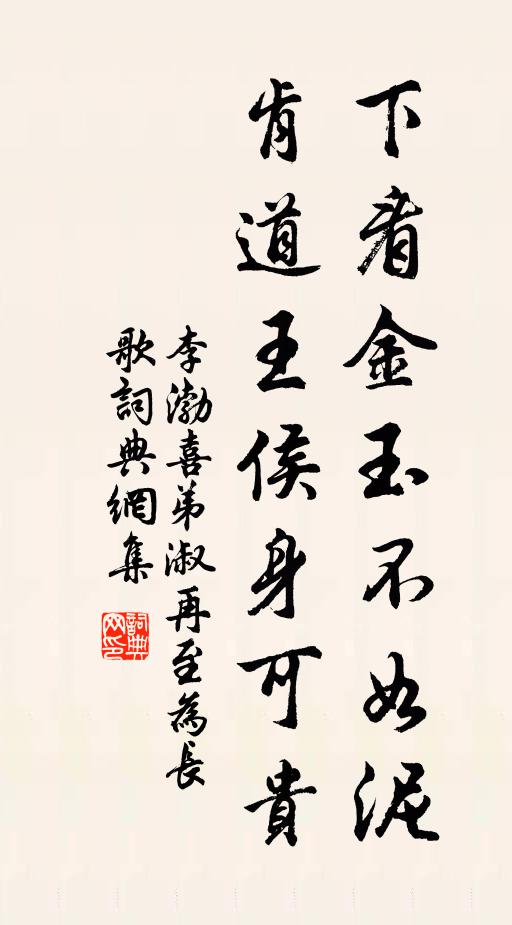 下看金玉不如泥
肯道王侯身可貴
李渤喜弟淑再至為長
歌詞典網集
詞典
网印